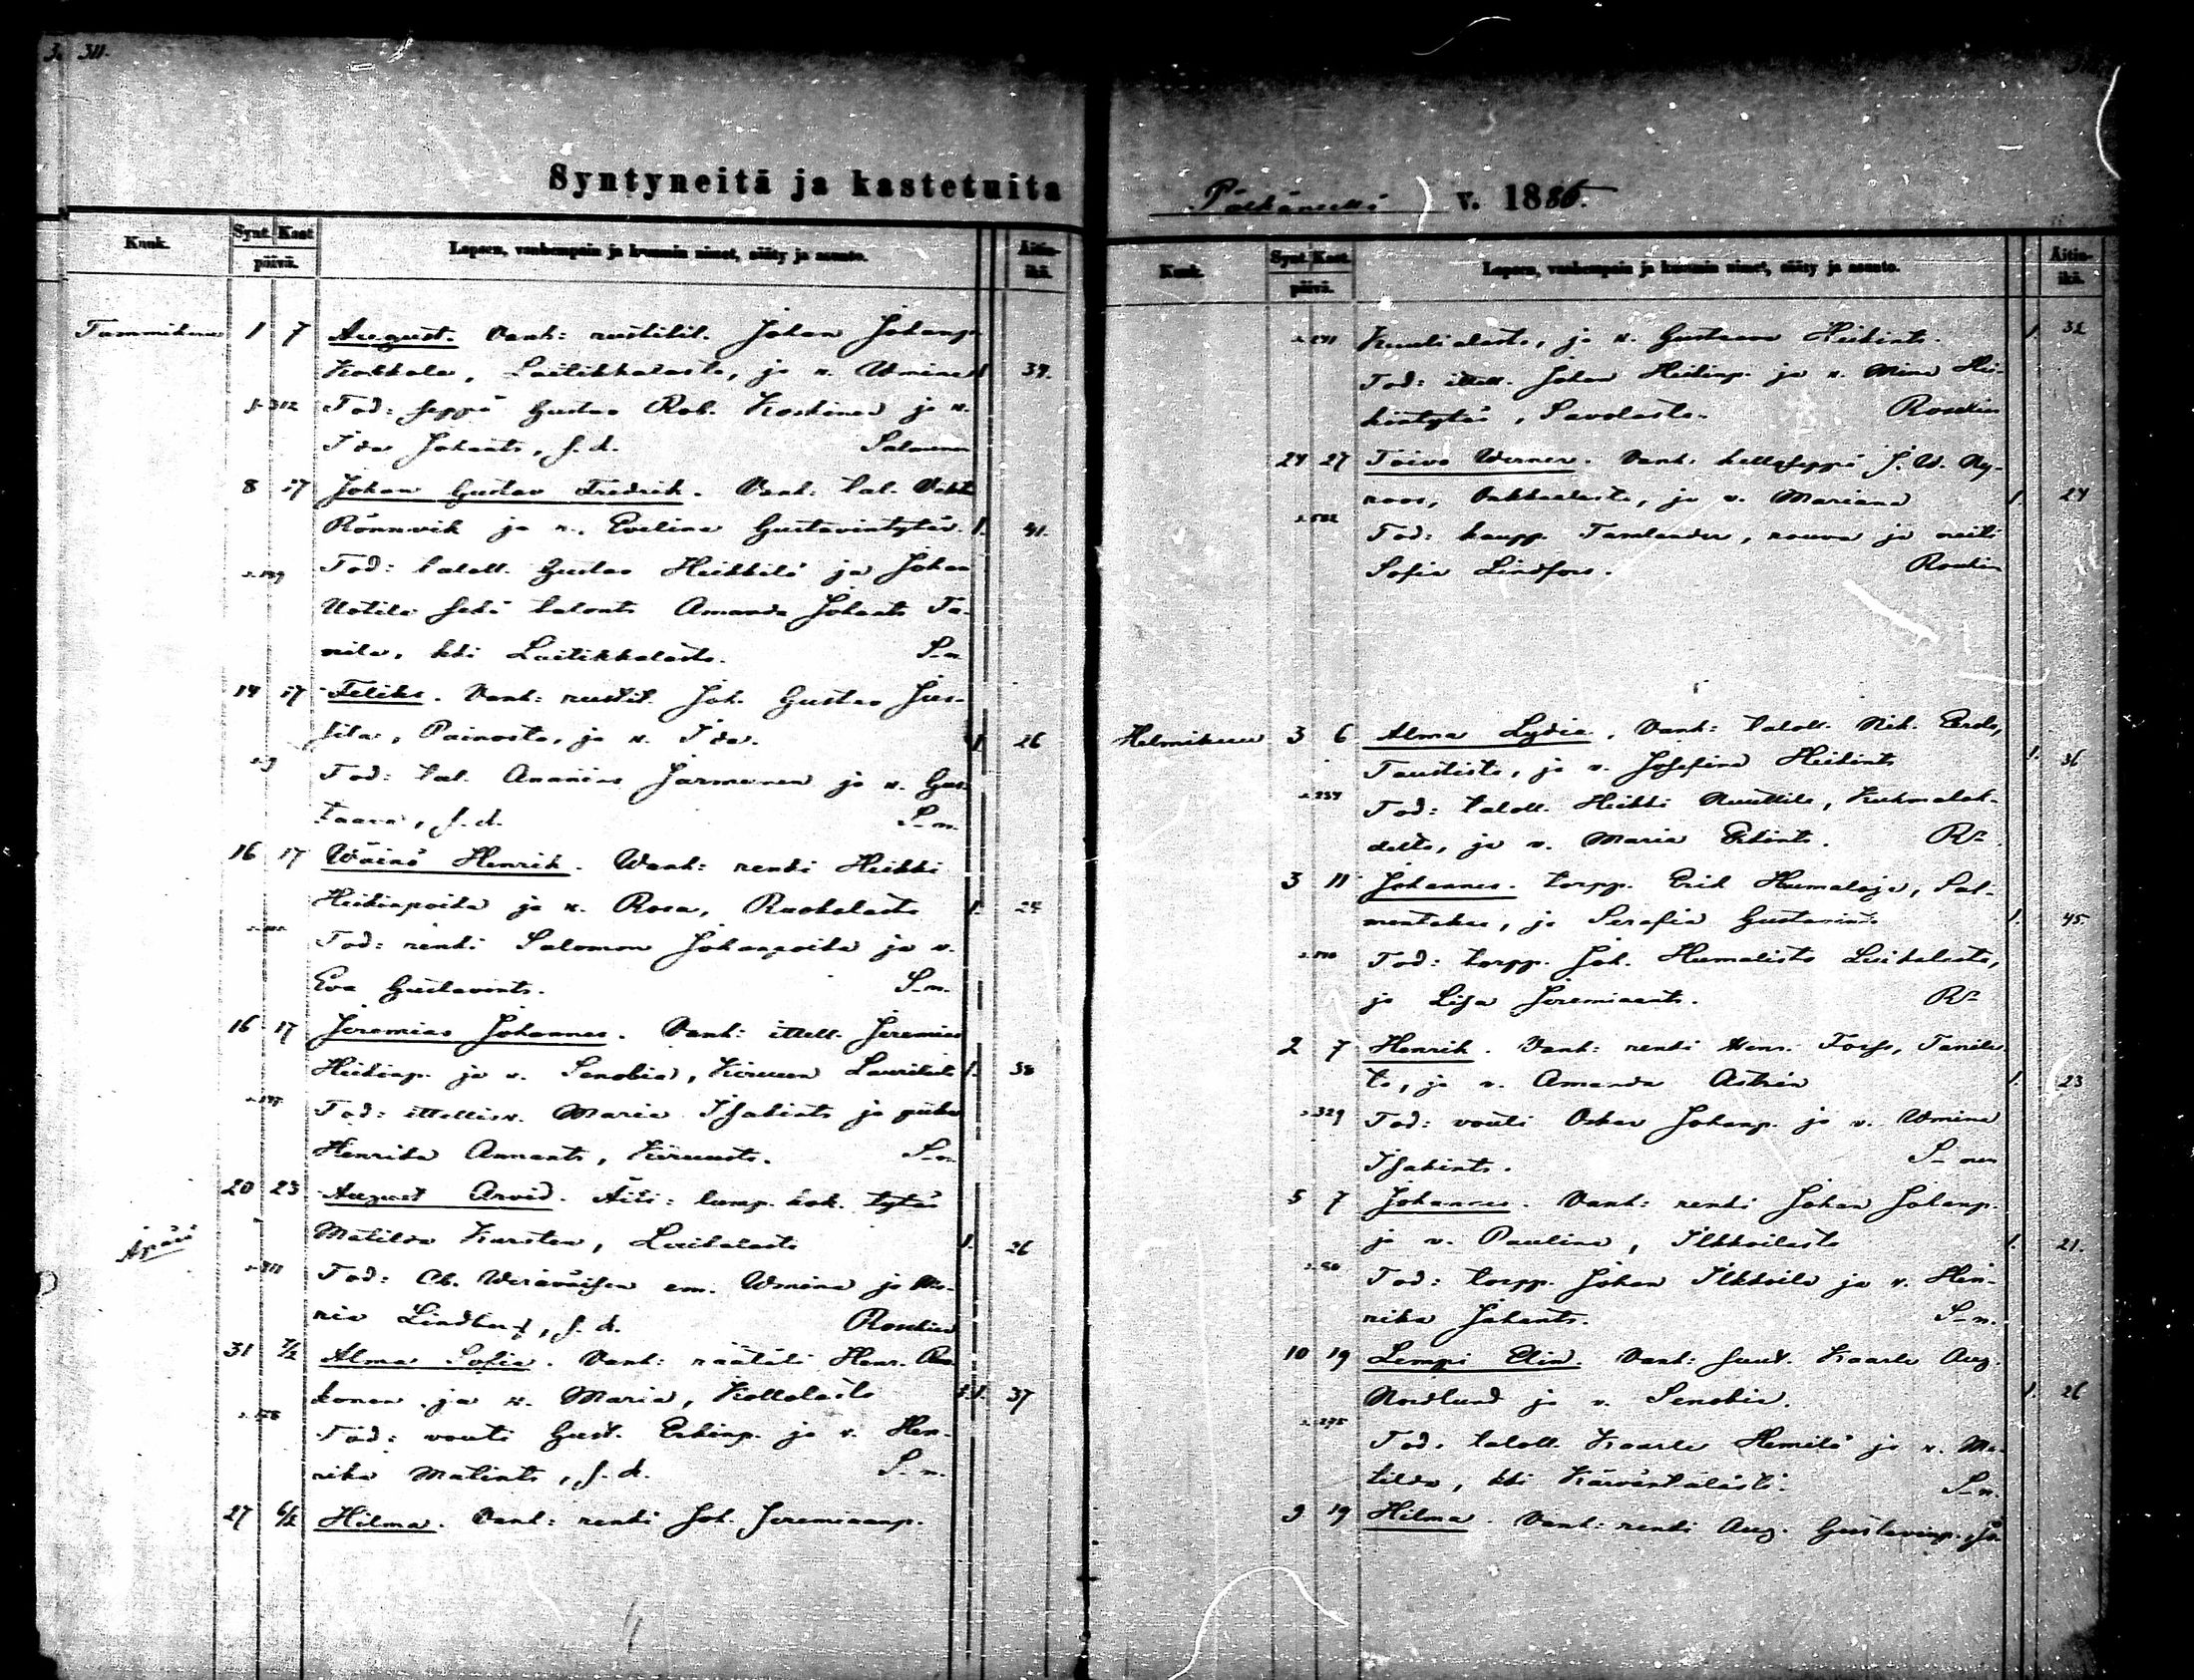 311.
Syntyneitä ja kastetuita
Pälkäneellä v. 1886.
Kuuk. Synt. Kast. päivä. Lapsen, vanhempain ja kummin nimet, sääty ja asunto. Äitin ikä.
Tammikuu 1 7 August. Vanh: rustitil. Johan Johanp.
Kokkola, Laitikkalasta, ja v. Wmina 1. 39.
s. 312 Tod: seppä Gustav Rob. Koskinen ja v.
Ida Johants, s. k. Salmenen
8 17 Johan Gustav Fredrik. Vanh: tal.
Rönnvik ja v. Evelina Gustavintytär. 1. 41.
Tod: taloll. Gustav Heikkilä ja Johan
Uotila sekä talont. Amanda Johants Ta-
nila, kki Laitikkalasta. S-n
14 17 Feliks. Vanh: rustit. Joh. Gustav Jus-
sila, Painosta, ja v. Ida. 1. 26
Tod: tal. Ananias Jarmunen ja v. Gus-
taava, s. k. S-n.
16 17 Wäinö Henrik. Wanh: renki Heikki
Heikinpoika ja v. Rosa, Ruokolasta 1. 27
Tod: renki Salomon Johanpoika ja v.
Eva Gustavints. S-n.
16 17 Jeremias Johannes. Vanh: ittell. Jeremias
Heikinp. ja v. Senobia, Kirmun 1. 38
Tod: ittellisv. Maria Isakints ja piika
Henrika Annants, Kirmusta. S-n
20 23 August Arvid. Äiti: lump. kok. tytär
Äpärä Matilda Karsten, Luikalasta 1. 26
Tod: em. Wmina ja Ma-
ria Lindberg, s. k. Roselius
31 7/2 Alma Sofia. Vanh: räätäli Henr.
konen ja v. Maria, Kollolasta 1. 37
Tod: vouti Gust. Erkinp. ja v. Hen-
rika Matints, s. k. S-n.
27 6/2 Hilma. Vanh: renki Joh. Jeremiaanp.
Kuuk. Synt. Kast. päivä. Lapsen, vanhempain ja kummin nimet, sääty ja asunto. Äitin ikä.
Kuulialasta, ja v. Gustaava Heikints. 1. 32
Tod: ittell. Johan Heikinp. ja v. Mina Hei-
kintytär, Savolasta. Roselius
24 27 Toivo Werner. Vanh: kelloseppä J. W. Ny-
roos, Onkkaalasta, ja v. Mariana 1. 24
Tod: kaupp. Tamlander, rouva ja neiti
Sofia Lindfors. Roselius
Helmikuu 3 6 Alma Lydia. Vanh: taloll. Nik. Eerola,
Taustista, ja v. Josefina Heikints 1. 36
s. 237 Tod: taloll. Heikki Nuuttila, Kuhmalah-
delta, ja v. Maria Erkints. Rs
3 11 Johannes. torpp. Erik Humaloja, Sal-
mentaka, ja Serafia Gustavints 1. 45.
Tod: torpp. Joh. Humalisto Luikalasta,
ja Lisa Jeremiaants. Rs
2 7 Henrik. Vanh: renki Henr. Forss, Tanila-
ta, ja v. Amanda Astrén 1. 23
s. 329 Tod: vouti Oskar Johanp. ja v. Wmina
Isakints. S-nen
5 7 Johannes. Vanh: renki Johan Johanp.
ja v. Paulina, Ilkkoilasta 1. 21.
Tod: torpp. Johan Ilkkoila ja v. Hen-
rika Johants. S-n.
10 19 Lempi Elin. Vanh: suut. Kaarle Aug.
Nordlund ja v. Senobia. 1. 26
s. 275 Tod. taloll. Kaarle Hemilä ja v. Ma-
tilda, kki Kärväntälästä. S-n.
9 19 Hilma. Vanh: renki Aug. Gustavinp.